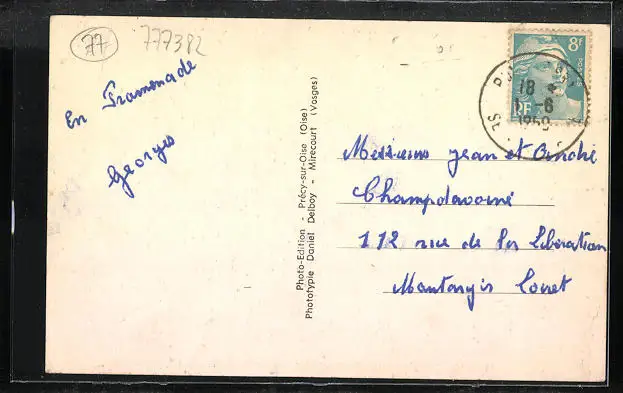 77
777382
En Promenade
Georges
Photo-Edition - Précy-sur-Oise (Oise)
Phototypie Daniel Delboy - Mirecourt (Vosges)
8F
RF
18
1 -6
1950
Messieurs Jean et André
Champdavoiné
112 rue de la libération
Montargis Loiret